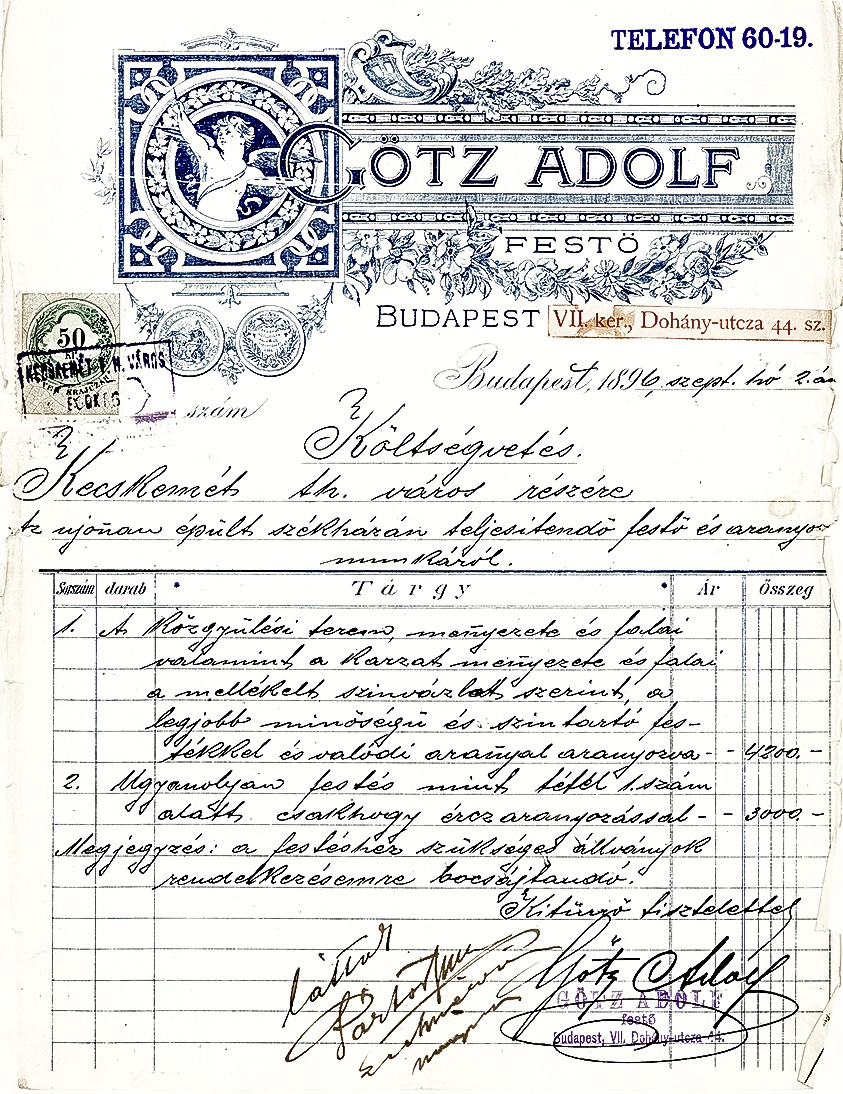 TELEFON 60-19.
GÖTZ ADOLF
FESTŐ
BUDAPEST VII. ker., Dohány-utcza 44. sz.
50
KECSKEMÉT T. H. VÁROS
Budapest, 1896, szept. hó 2.án
szám
Költségvetés.
Kecskemét th. város részére
az ujonan épült székházán teljesitendő festő és aranyozó
munkáról.
Sorszám darab Tárgy Ár Összeg
1. A Közgyülési terem, menyezete és falai
valamint a karzat menyezete és falai
a mellékelt szinvázlat szerint, a
legjobb minőségü és szintartó fes-
tékkel és valódi aranyal aranyozva - - 4200.-
2. Ugyanolyan festés mint tétel 1. szám
alatt csakhogy érczaranyozással - - 3000.-
Megjegyzés: a festéshez szükséges állványok
rendelkezésemre bocsájtandó.
Kitünő tisztelettel
Götz Adolf
láttam
GÖTZ ADOLF
festő
Budapest, VII. Dohány-utcza 44.